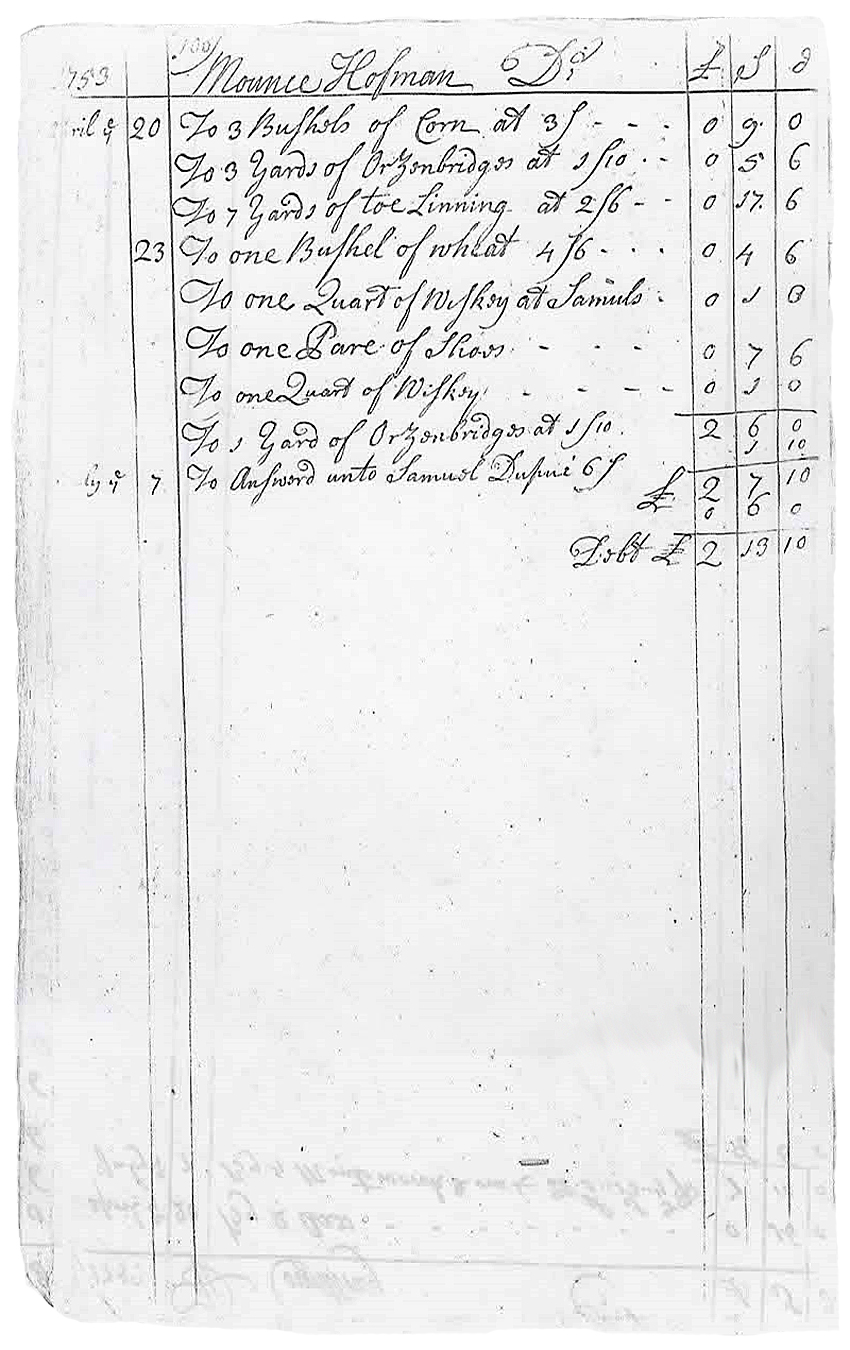 100
1753 Mounce Hofman Dr £ S d
April ye 20 To 3 Bushels of Corn at 3/ - - - 0 9 0
To 3 Yards of Orzenbridges at 1/10 - - 0 5 6
To 7 Yards of toe Linning at 2/6 - - 0 17 6
23 To one Bushel of wheat 4/6 - - - 0 4 6
To one Quart of Wiskey at Samuls - 0 1 0
To one Pare of Shoos - - - - 0 7 6
To one Quart of Wiskey - - - - 0 1 0
2 6 0
To 1 Yard of Orzenbridges at 1/10 . 1 10
£ 2 7 10
ly ye 7 To Answerd unto Samuel Dupue 6/ 0 6 0
Debt £ 2 13 10